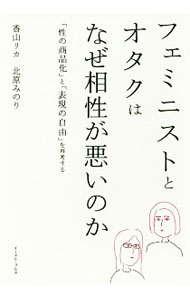 フェミニストと
オタクは
なぜ相性が悪いのか
「性の商品化」と「表現の自由」を再考する
香山リカ 北原みのり
イースト・プレス